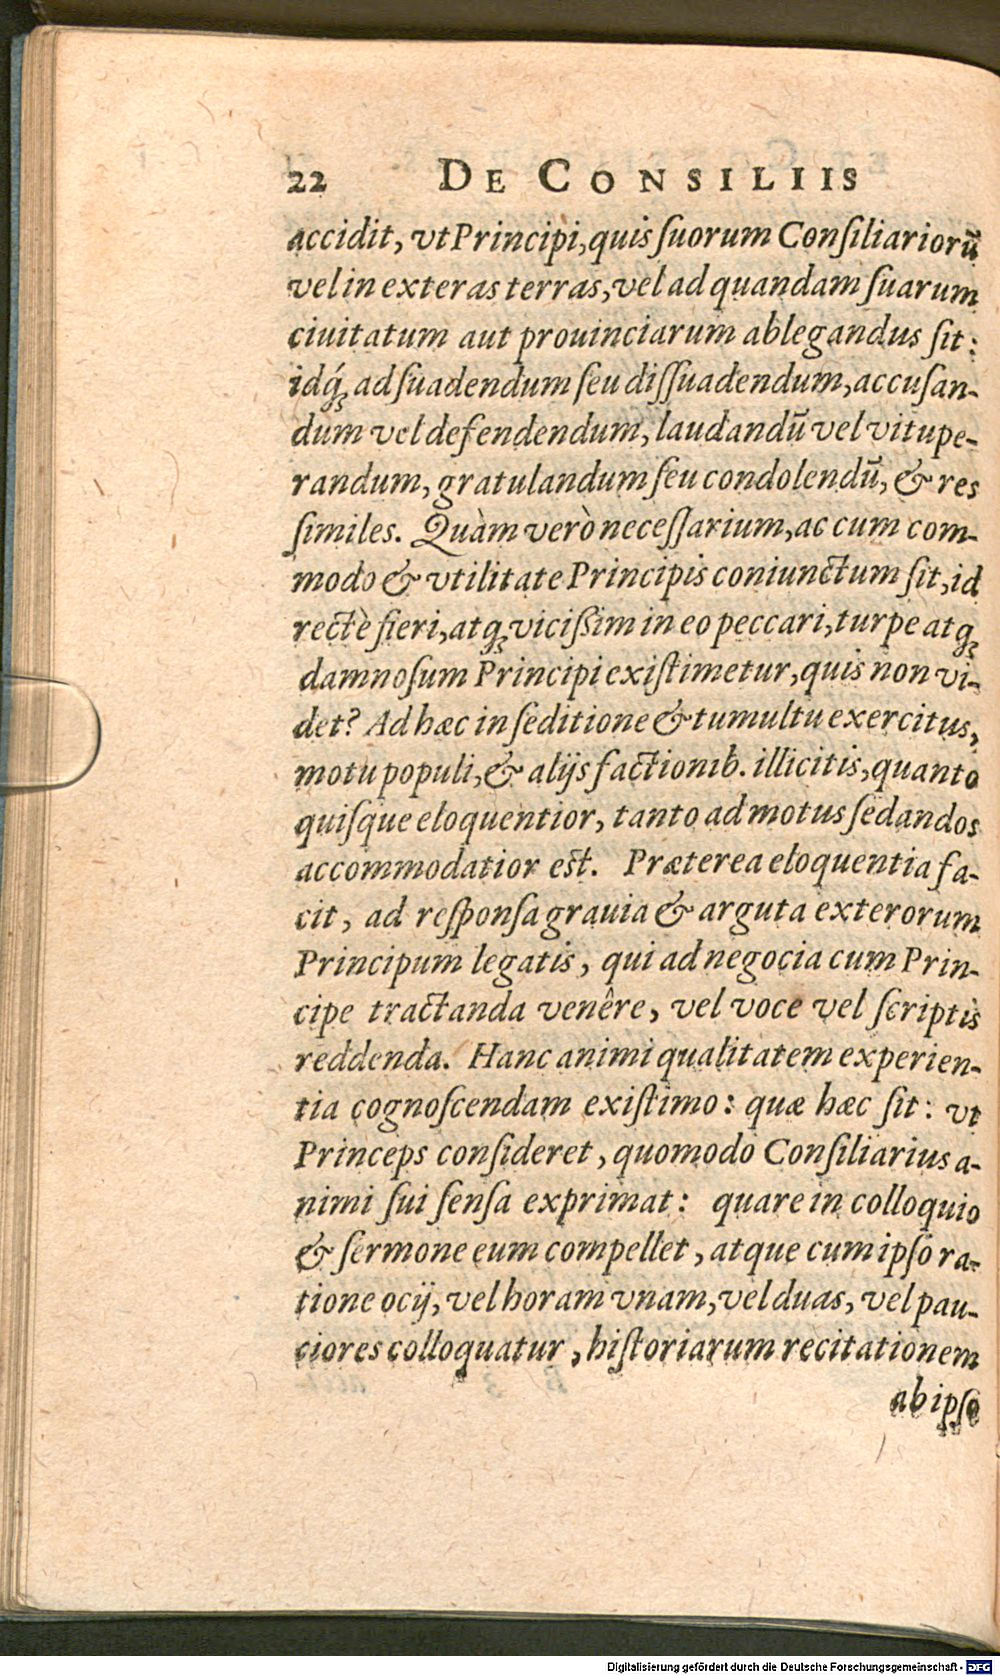 22 DE CONSILIIS
accidit, vt Principi, quis ſuorum Conſiliariorũ
vel in exteras terras, vel ad quandam ſuarum
ciuitatum aut prouinciarum ablegandus ſit:
idq́ꝫ ad ſuadendum ſeu diſſuadendum, accuſan-
dum vel defendendum, laudandũ vel vitupe-
randum, gratulandum ſeu condolendũ, & res
ſimiles. Quàm verò neceſſarium, ac cum com-
modo & vtilitate Principis coniunctum ſit, id
rectè fieri, atqꝫ viciſsim in eo peccari, turpe atqꝫ
damnoſum Principi exiſtimetur, quis non vi-
det? Ad hæc in ſeditione & tumultu exercitus,
motu populi, & alijs factionib. illicitis, quanto
quiſque eloquentior, tanto ad motus ſedandos
accommodatior eſt. Præterea eloquentia fa-
cit, ad reſponſa grauia & arguta exterorum
Principum legatis, qui ad negocia cum Prin-
cipe tractanda venêre, vel voce vel ſcriptis
reddenda. Hanc animi qualitatem experien-
tia cognoſcendam exiſtimo: quæ hæc ſit: vt
Princeps conſideret, quomodo Conſiliarius a-
nimi ſui ſenſa exprimat: quare in colloquio
& ſermone eum compellet, atque cum ipſo ra-
tione ocij, vel horam vnam, vel duas, vel pau-
ciores colloquatur, hiſtoriarum recitationem
ab ipſo
Digitalisierung gefördert durch die Deutsche Forschungsgemeinschaft - DFG